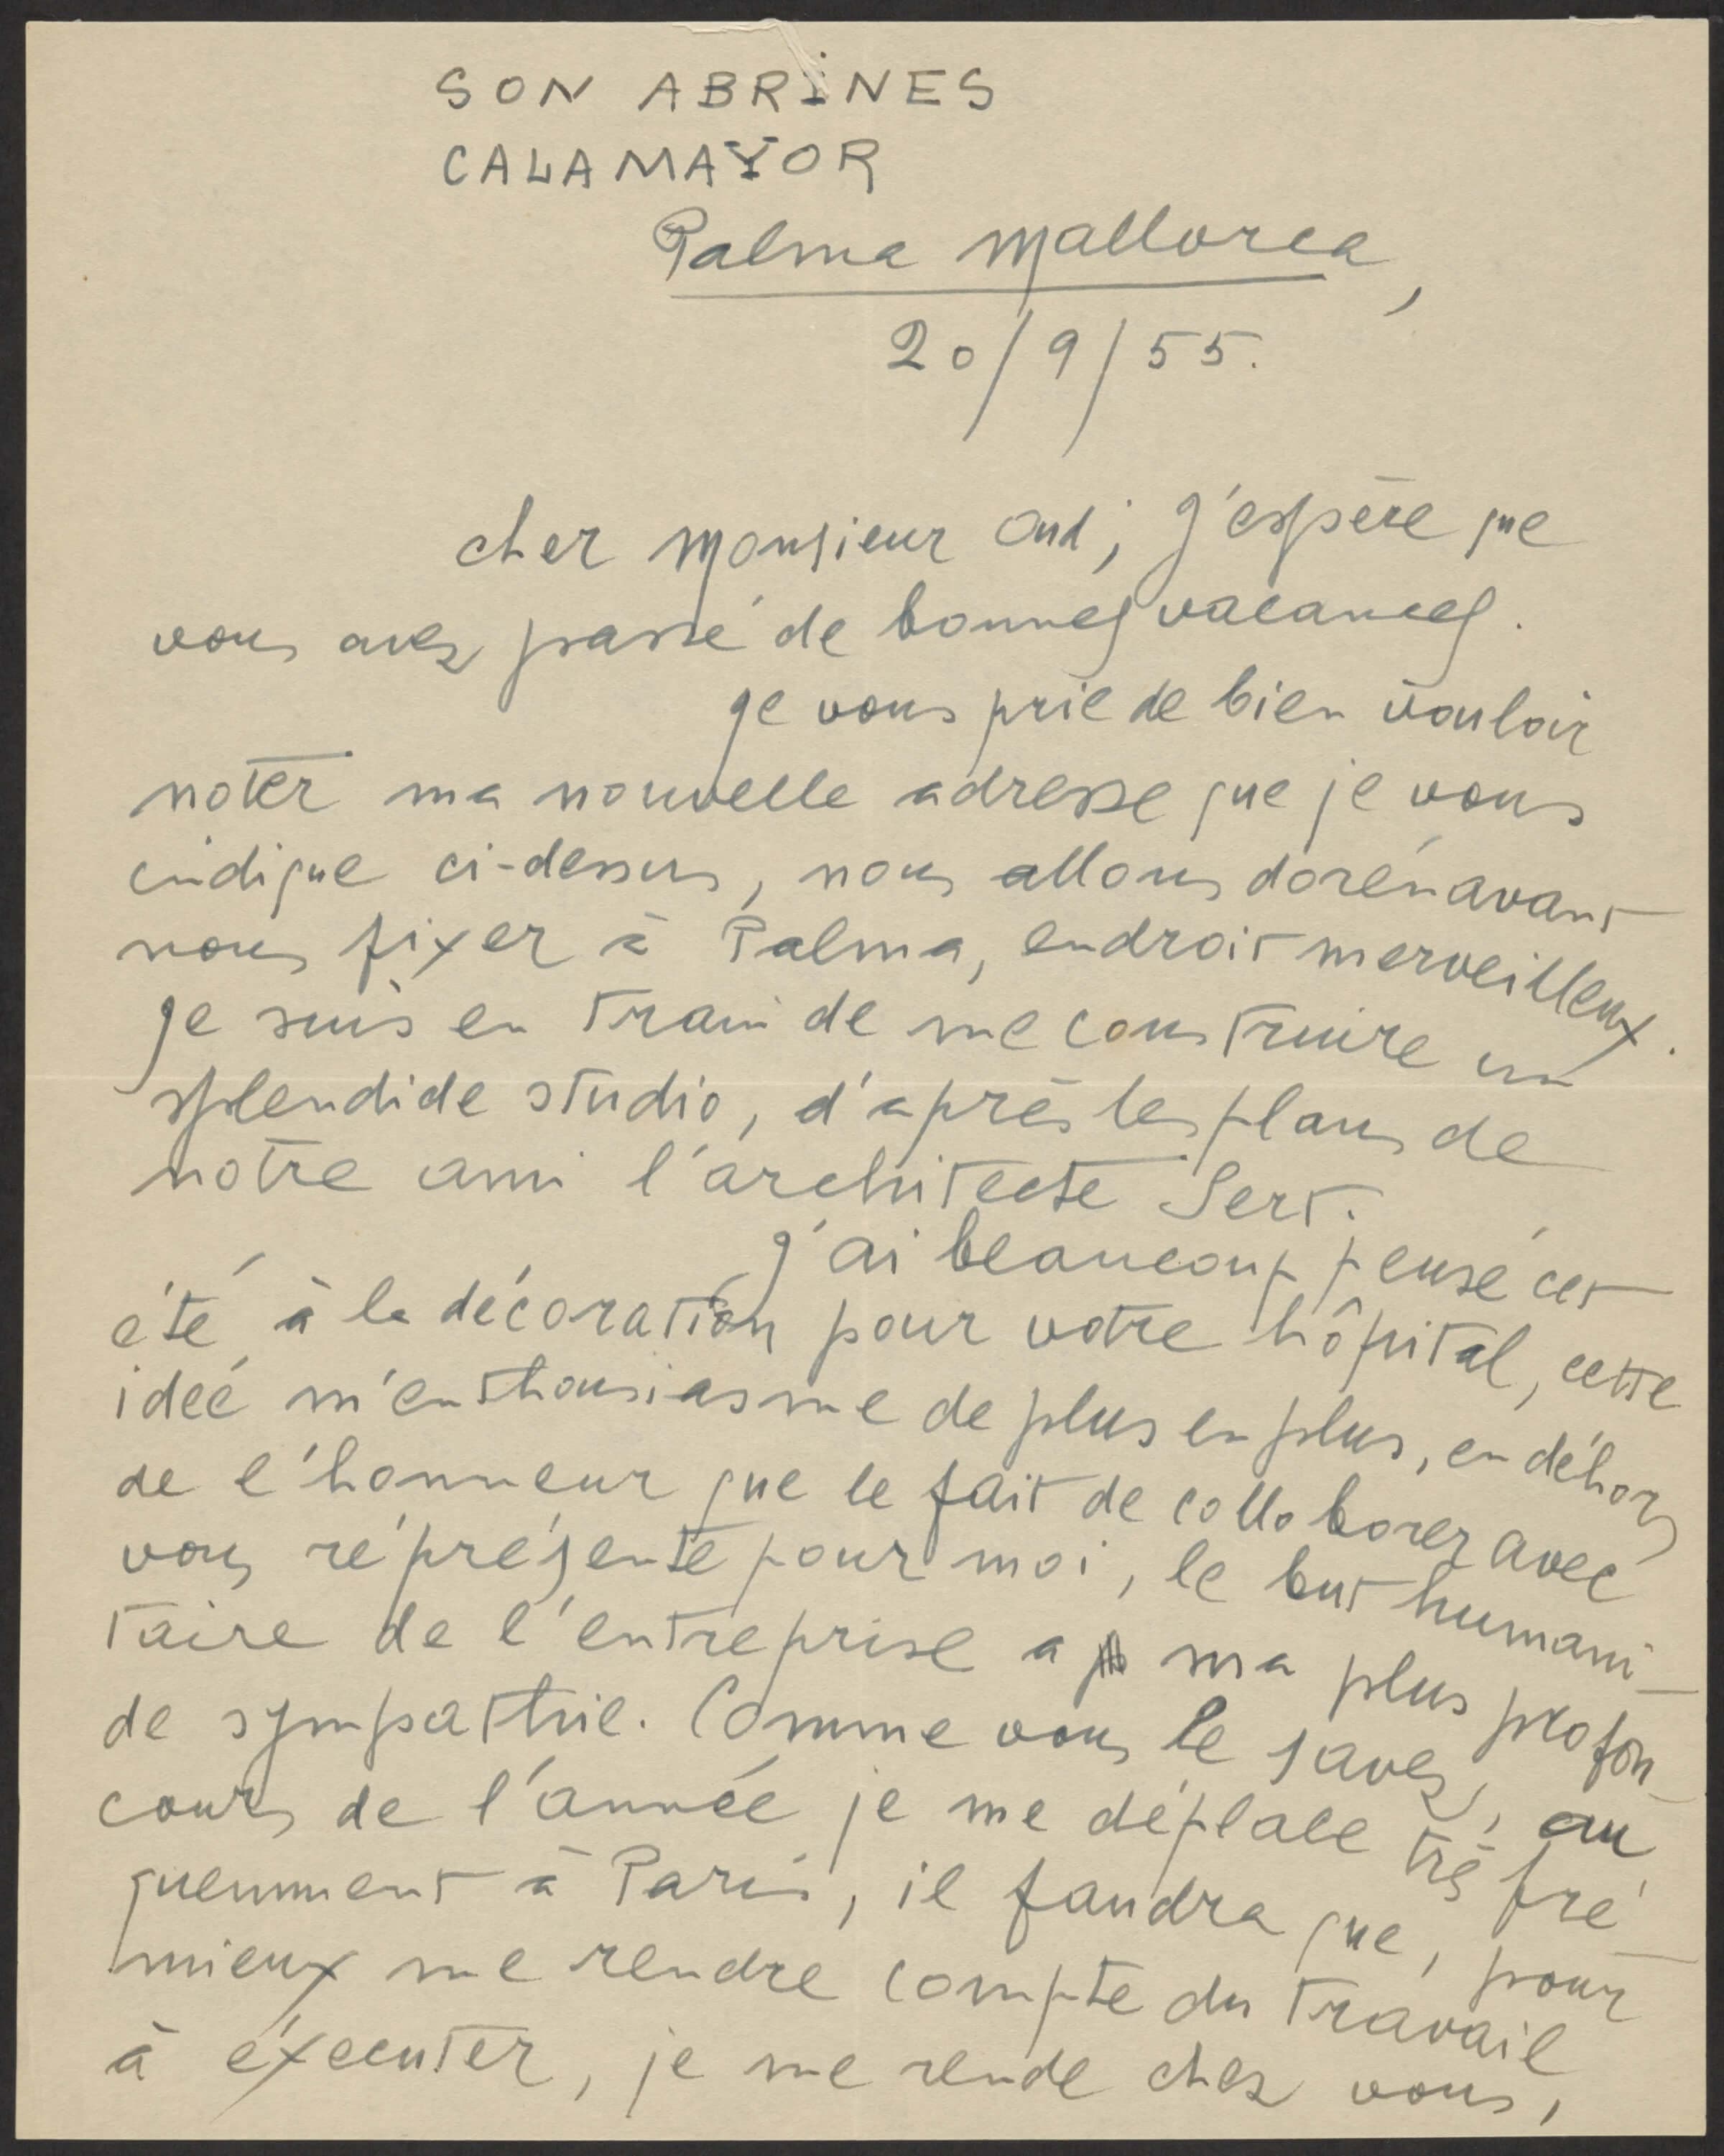 SON ABRINES
CALAMAYOR
Palma Mallorca,
20/9/55.
cher Monsieur Oud, J'espère que
vous avez passé de bonnes vacances.
Je vous prie de bien vouloir
noter ma nouvelle adresse que je vous
indique ci-dessus, nous allons dorénavant
nous fixer à Palma, endroit merveilleux.
Je suis en train de me construire un
splendide studio, d'après les plans de
notre ami l'architecte Sert.
J'ai beaucoup pensé cet
été à la décoration pour votre hôpital, cette
ideé m'enthousiasme de plus en plus, en déhors
de l'honneur que le fait de colloborer avec
vous réprésente pour moi, le but humani-
taire de l'entreprise a ma plus profon-
de sympathie. Comme vous le savez, au
cours de l'année je me déplace très fré-
quemment à Paris, il faudra que, pour
mieux me rendre compte du travail
à éxecuter, je me rende chez vous,